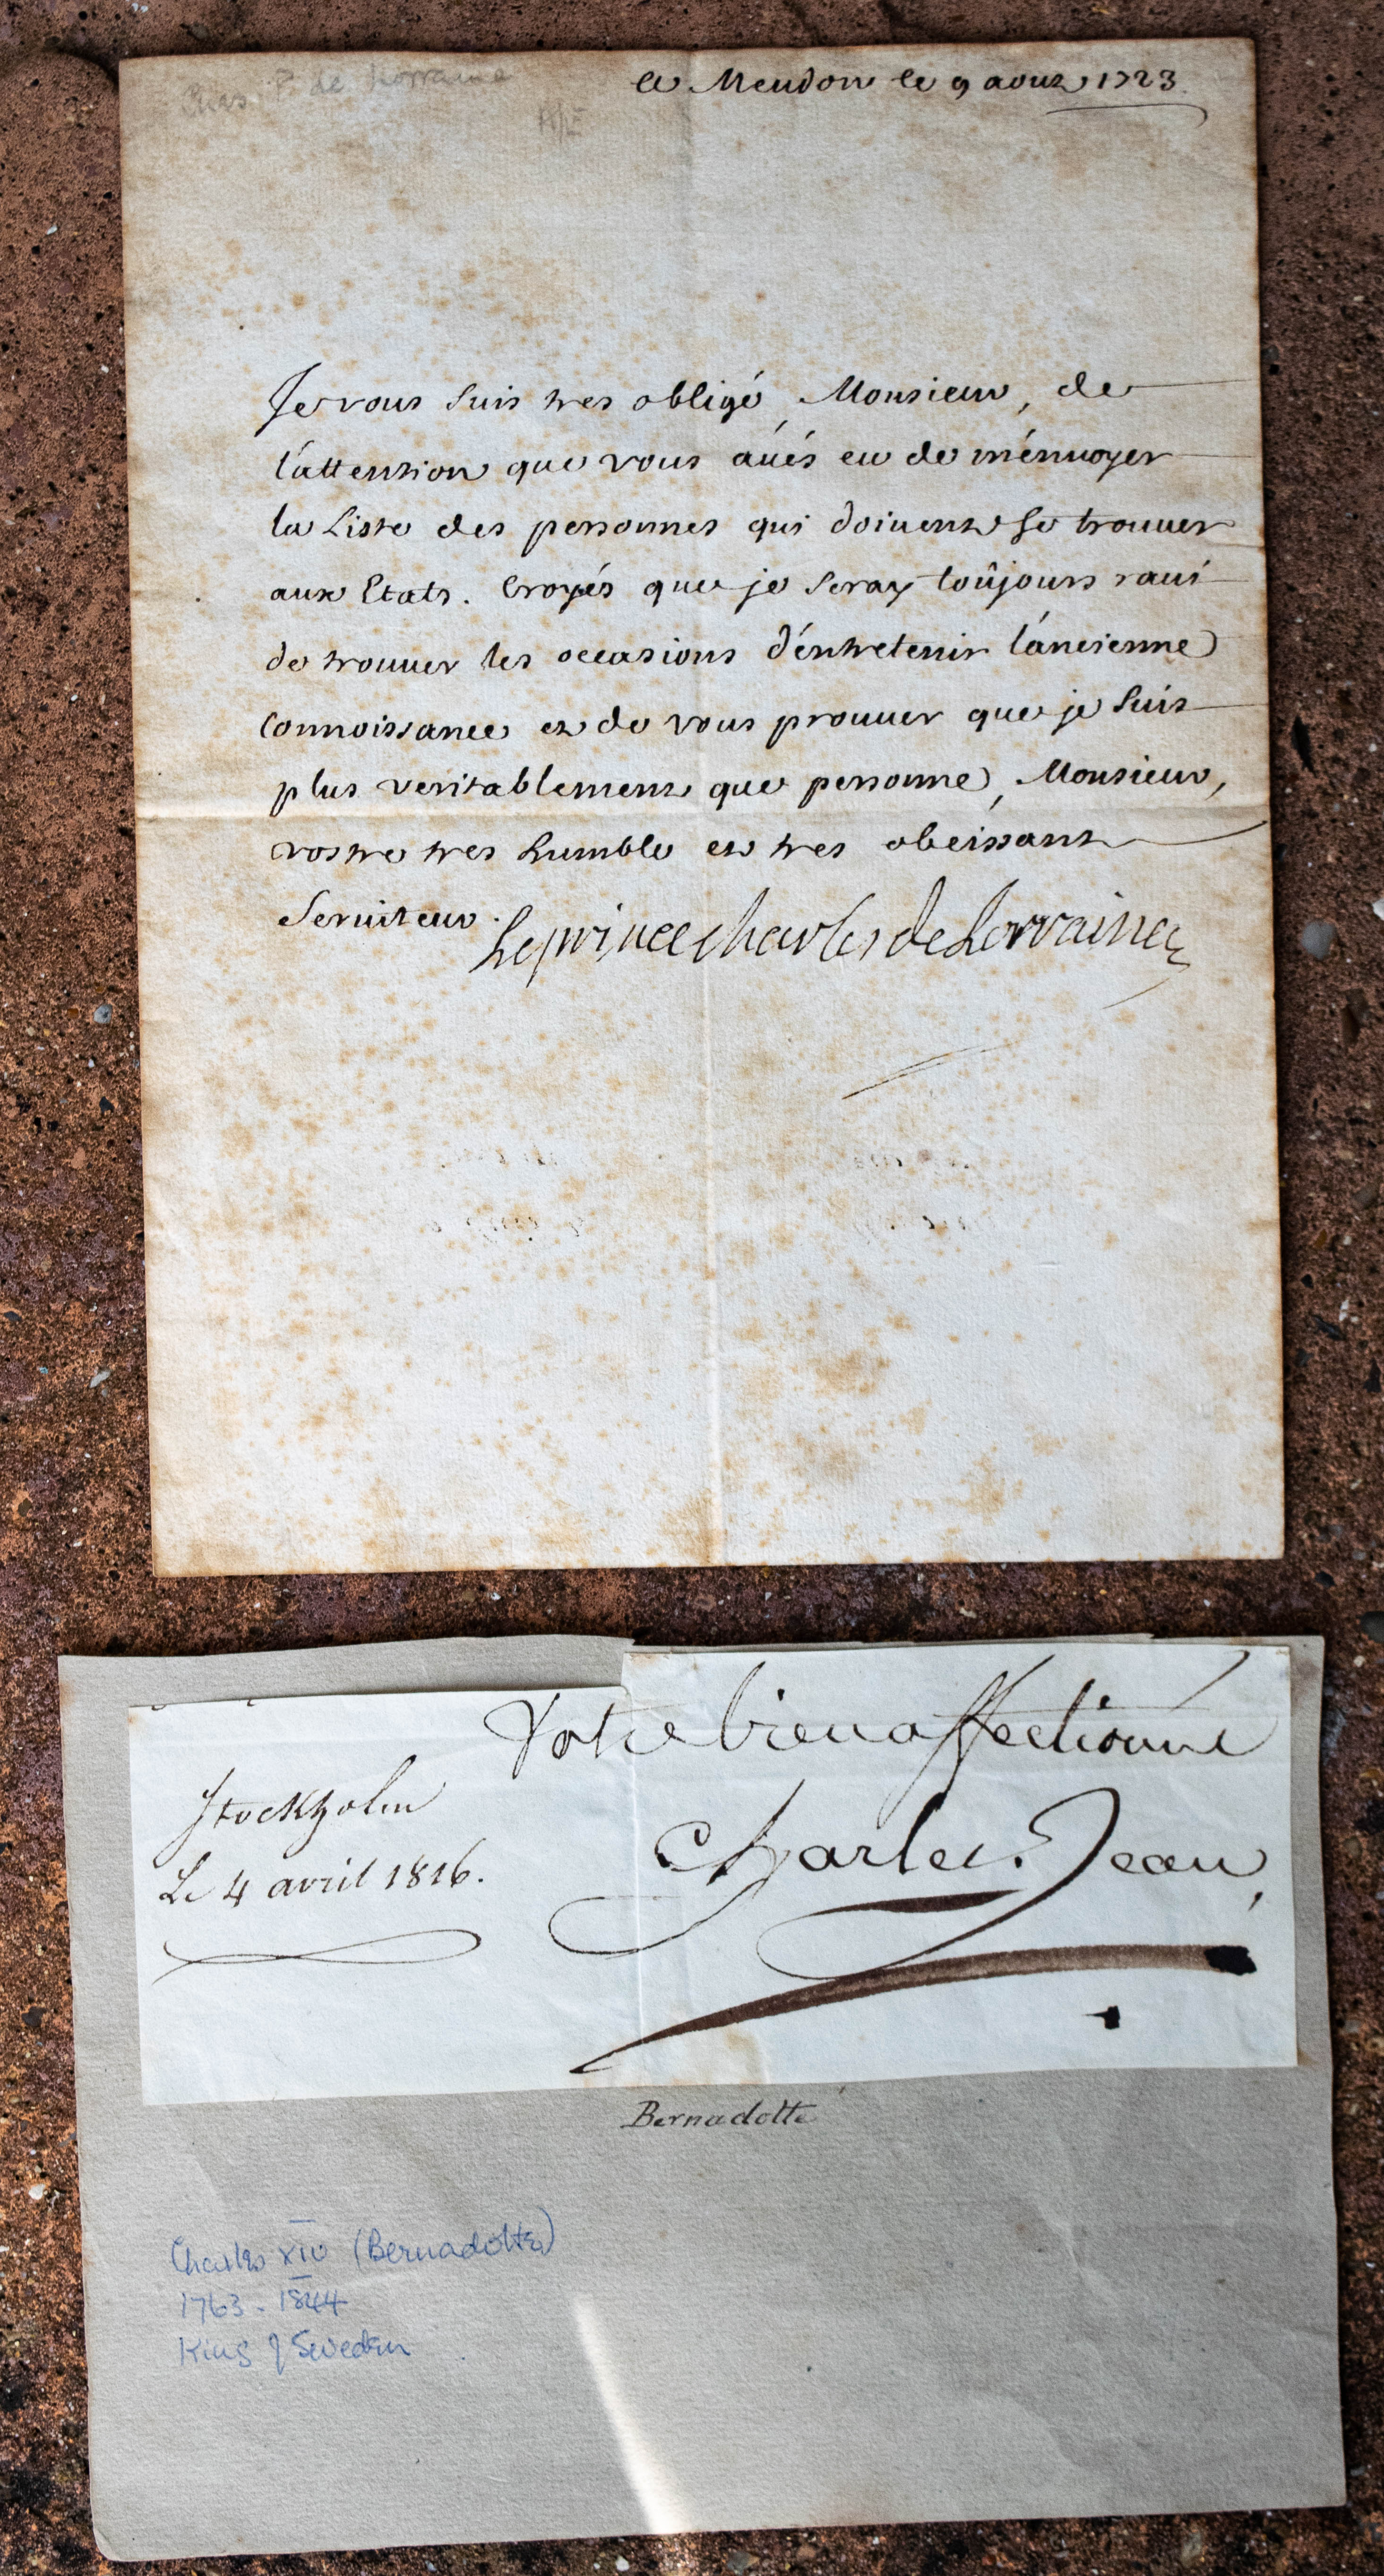 P. de Lorraine
A Meudon le 9 aoust 1723
Je vous suis tres obligé, Monsieur, de
l'attention que vous avés eu de m'envoyer
la Liste des personnes qui doivent se trouver
aux Etats. Croyés que je seray toûjours ravi
de trouver les occasions d'entretenir l'ancienne
connoissance et de vous prouver que je suis
plus veritablement que personne, Monsieur,
vostre tres humble et tres obeissant
Serviteur.
Le prince charles de Lorraine
Votre bien affectionné
Stockholm
Le 4 avril 1816.
Charles Jean
Bernadotte
Charles XIV (Bernadotte)
1763 - 1844
King of Sweden